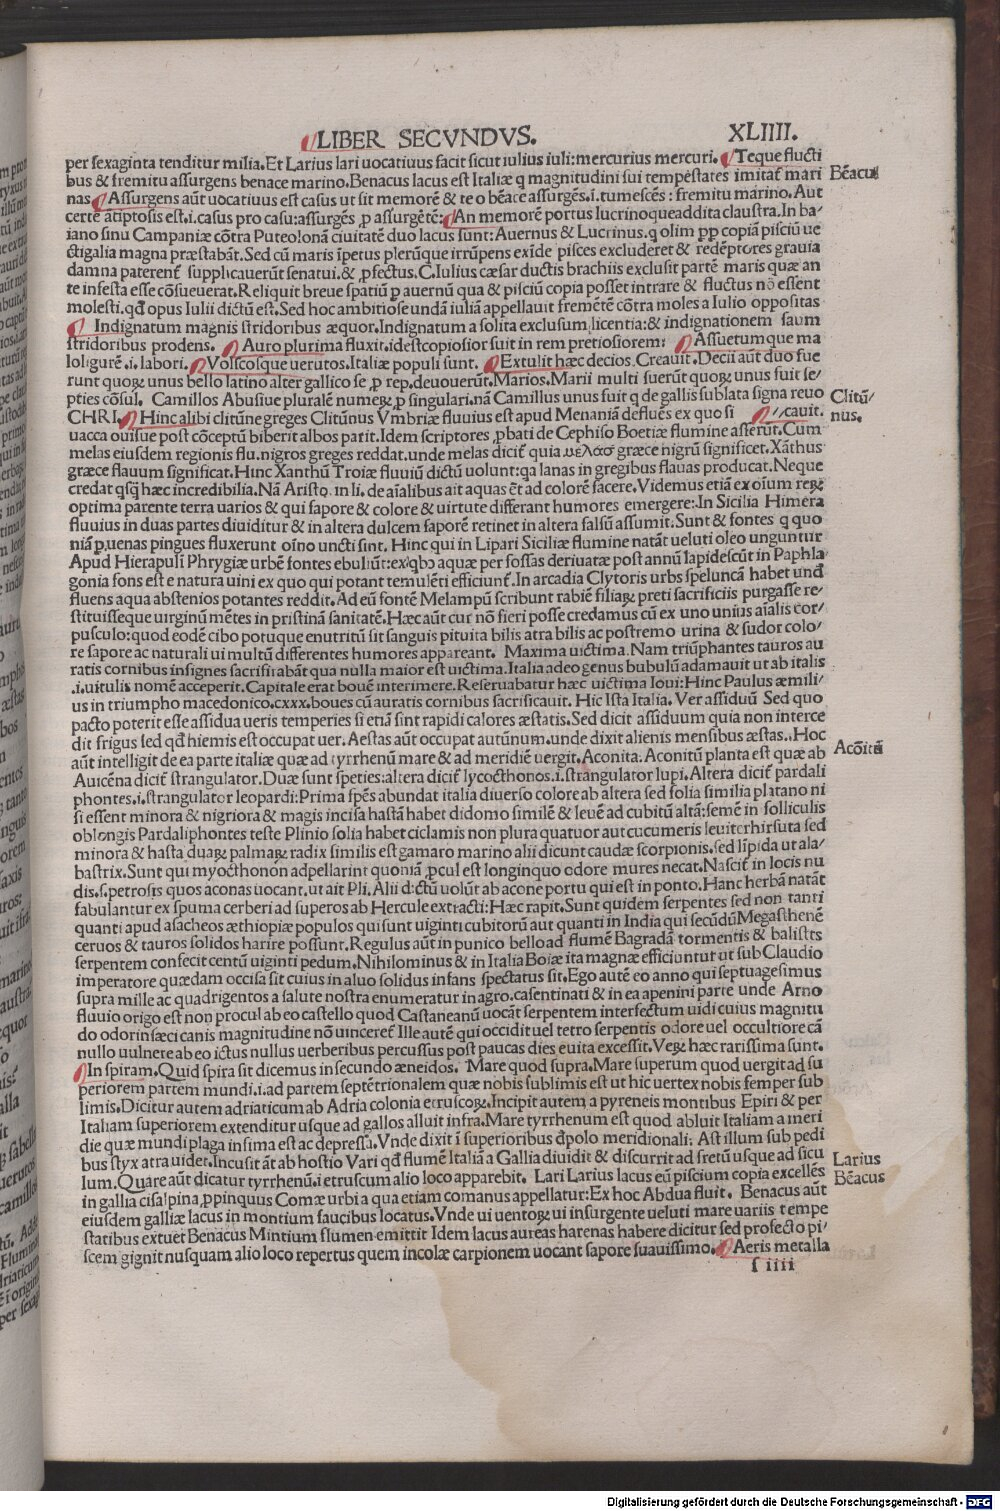 LIBER SECVNDVS. XLIIII.
per sexaginta tenditur milia. Et Larius lari uocatiuus facit sicut iulius iuli: mercurius mercuri. Teque flucti
bus & fremitu assurgens benace marino. Benacus lacus est Italiæ q magnitudini sui tempestates imitat᷑ mari
nas Assurgens aūt uocatiuus est casus ut sit memorē & te o bēace assurgēs.i.tumescēs: fremitu marino. Aut
certe ātiptosis est.i.casus pro casu: assurgēs ꝓ assurgētē: An memorē portus lucrinoque addita claustra. In ba/
iano sinu Campaniæ cōtra Puteolonā ciuitatē duo lacus sunt: Auernus & Lucrinus. q olim pp copiā pisciū ue
ctigalia magna præstabāt. Sed cū maris īpetus plerūque irrūpens exīde pisces excluderet & redēptores grauia
damna paterent᷑ supplicauerūt senatui. & ꝓfectus. C. Iulius cæsar ductis brachiis exclusit partē maris quæ an
te infesta esse cōsueuerat. Reliquit breue spatiū ꝑ auernū qua & pisciū copia posset intrare & fluctus nō essent
molesti. qđ opus Iulii dictū est. Sed hoc ambitiose undā iuliā appellauit fremētē cōtra moles a Iulio oppositas
Indignatum magnis stridoribus æquor. Indignatum a solita exclusum licentia: & indignationem suum
stridoribus prodens. Auro plurima fluxit. idest copiosior fuit in rem pretiosiorem: Assuetumque ma
lo ligurē.i. labori. Volscosque uerutos. Italiæ populi sunt. Extulit hæc decios. Creauit. Decii aūt duo fue
runt quoꝝ unus bello latino alter gallico se ꝓ rep. deuouerūt. Marios. Marii multi fuerūt quoꝝ unus fuit se/
pties cōsul. Camillos Abusiue pluralē numeꝝ ꝓ singulari. nā Camillus unus fuit q de gallis sublata signa reuo
CHRI. Hinc albi clitūne greges Clitūnus Vmbriæ fluuius est apud Menaniā defluēs ex quo si cauit.
uacca ouisue post cōceptū biberit albos parit. Idem scriptores ꝓbati de Cephiso Boetiæ flumine asserūt. Cum
melas eiusdem regionis flu. nigros greges reddat. unde melas dicit᷑ quia μελασ græce nigrū significet. Xāthus
græce flauum significat. Hinc Xanthū Troiæ fluuiū dictū uolunt: qa lanas in gregibus flauas producat. Neque
credat qsq̄ hæc incredibilia. Nā Aristo. in li. de aīalibus ait aquas ēt ad colorē facere. Videmus etiā ex oīum reꝝ
optima parente terra uarios & qui sapore & colore & uirtute differant humores emergere: In Sicilia Himera
fluuius in duas partes diuiditur & in altera dulcem saporē retinet in altera falsū assumit. Sunt & fontes q quo
niā ꝑ uenas pingues fluxerunt oīno uncti sint. Hinc qui in Lipari Siciliæ flumine natāt ueluti oleo unguntur
Apud Hierapulī Phrygiæ urbē fontes ebuliūt: ex qbꝰ aquæ per fossas deriuatæ post annū lapidescūt in Paphla
gonia fons est e natura uini ex quo qui potant temulēti efficiunt᷑. In arcadia Clytoris urbs speluncā habet unđ
fluens aqua abstenios potantes reddit. Ad eū fontē Melampū scribunt rabiē filiaꝝ preti sacrificiis purgasse re/
stituisseque uirginū mētes in pristinā sanitatē. Hæc aūt cur nō fieri posse credamus cū ex uno unius aīalis cor/
pusculo: quod eodē cibo potuque enutritū sit sanguis pituita bilis atra bilis ac postremo urina & sudor colo/
re sapore ac naturali ui multū differentes humores appareant. Maxima uictima. Nam triūphantes tauros au
ratis cornibus insignes sacrificabāt qua nulla maior est uictima. Italia adeo genus bubulū adamauit ut ab italis
.i. uitulis nomē acceperit. Capitale erat bouē interimere. Reseruabatur hæc uictima Ioui: Hinc Paulus æmili/
us in triumpho macedonico .cxxx. boues cū auratis cornibus sacrificauit. Hic Ista Italia. Ver assiduū Sed quo
pacto poterit esse assidua ueris temperies si etiā sint rapidi calores æstatis. Sed dicit assiduum quia non interce
dit frigus sed qđ hiemis est occupat uer. Aestas aūt occupat autūnum. unde dixit alienis mensibus æstas. Hoc
aūt intelligit de ea parte italiæ quæ ad tyrrhenū mare & ad meridiē uergit. Aconita. Aconitū planta est quæ ab
Auicēna dicit᷑ strangulator. Duæ sunt speties: altera dicit᷑ lycocthonos.i. strangulator lupi. Altera dicit᷑ pardali
phontes.i. strangulator leopardi: Prima spēs abundat italia diuerso colore ab altera sed folia similia platano ni
si essent minora & nigriora & magis incisa hastā habet didomo similē & leuē ad cubitū altā: semē in folliculis
oblongis Pardaliphontes teste Plinio folia habet ciclamis non plura quatuor aut cucumeris leuiter hirsuta sed
minora & hasta duaꝝ palmaꝝ radix similis est gamaro marino alii dicunt caudæ scorpionis. sed līpida ut ala/
bastrix. Sunt qui myocthonon adpellarint quoniā ꝓcul est longinquo odore mures necat. Nascit᷑ in locis nu
dis. s. petrosis quos aconas uocant. ut ait Pli. Alii dictū uolūt ab acone portu qui est in ponto. Hanc herbā natāt
fabulantur ex spuma cerberi ad superos ab Hercule extracti: Hæc rapit. Sunt quidem serpentes sed non tanti
quanti apud asacheos æthiopiæ populos qui sunt uiginti cubitorū aut quanti in India qui secūdū Megasthenē
ceruos & tauros solidos harire possunt. Regulus aūt in punico bello ad flumē Bagradā tormentis & balistis
serpentem confecit centū uiginti pedum. Nihilominus & in Italia Boiæ ita magnæ efficiuntur ut sub Claudio
imperatore quædam occisa sit cuius in aluo solidus infans spectatus sit. Ego autē eo anno qui septuagesimus
supra mille ac quadrigentos a salute nostra enumeratur in agro. casentinati & in ea apenini parte unde Arno
fluuio origo est non procul ab eo castello quod Castaneanū uocāt serpentem interfectum uidi cuius magnitu
do odorinsæci canis magnitudine nō uinceret᷑ Ille autē qui occidit uel tetro serpentis odore uel occultiore cā
nullo uulnere ab eo ictus nullus uerberibus percussus post paucas dies euita excessit. Veꝝ hæc rarissima sunt.
In spiram. Quid spira sit dicemus in secundo æneidos. Mare quod supra. Mare superum quod uergit ad su
periorem partem mundi.i. ad partem septētrionalem quæ nobis sublimis est ut hic uertex nobis semper sub
limis. Dicitur autem adriaticum ab Adria colonia etruscoꝝ. Incipit autem a pyreneis montibus Epiri & per
Italiam superiorem extenditur usque ad gallos alluit infra. Mare tyrrhenum est quod abluit Italiam a meri
die quæ mundi plaga infima est ac depressa. Vnde dixit ī superioribus đ polo meridionali: Ast illum sub pedi
bus styx atra uidet. Incusit āt ab hostio Vari qđ flumē Italiā a Gallia diuidit & discurrit ad fretū usque ad sicu
lum. Quare aūt dicatur tyrrhenū.i etruscum alio loco apparebit. Lari Larius lacus eū piscium copia excellēs
in gallia cisalpina ꝓpinquus Comæ urbi a qua etiam comanus appellatur: Ex hoc Abdua fluit. Benacus aūt
eiusdem galliæ lacus in montium faucibus locatus. Vnde ui uentoꝝ ui insurgente ueluti mare uariis tempe
statibus extuet Benacus Mintium flumen emittit Idem lacus aureas harenas habere dicitur sed profecto pi/
scem gignit nusquam alio loco repertus quem incolæ carpionem uocant sapore suauissimo. Aeris metalla
s iiii
Bēacus
Clitū/
nus.
Acōitū
Larius
Bēacus
Digitalisierung gefördert durch die Deutsche Forschungsgemeinschaft - DFG